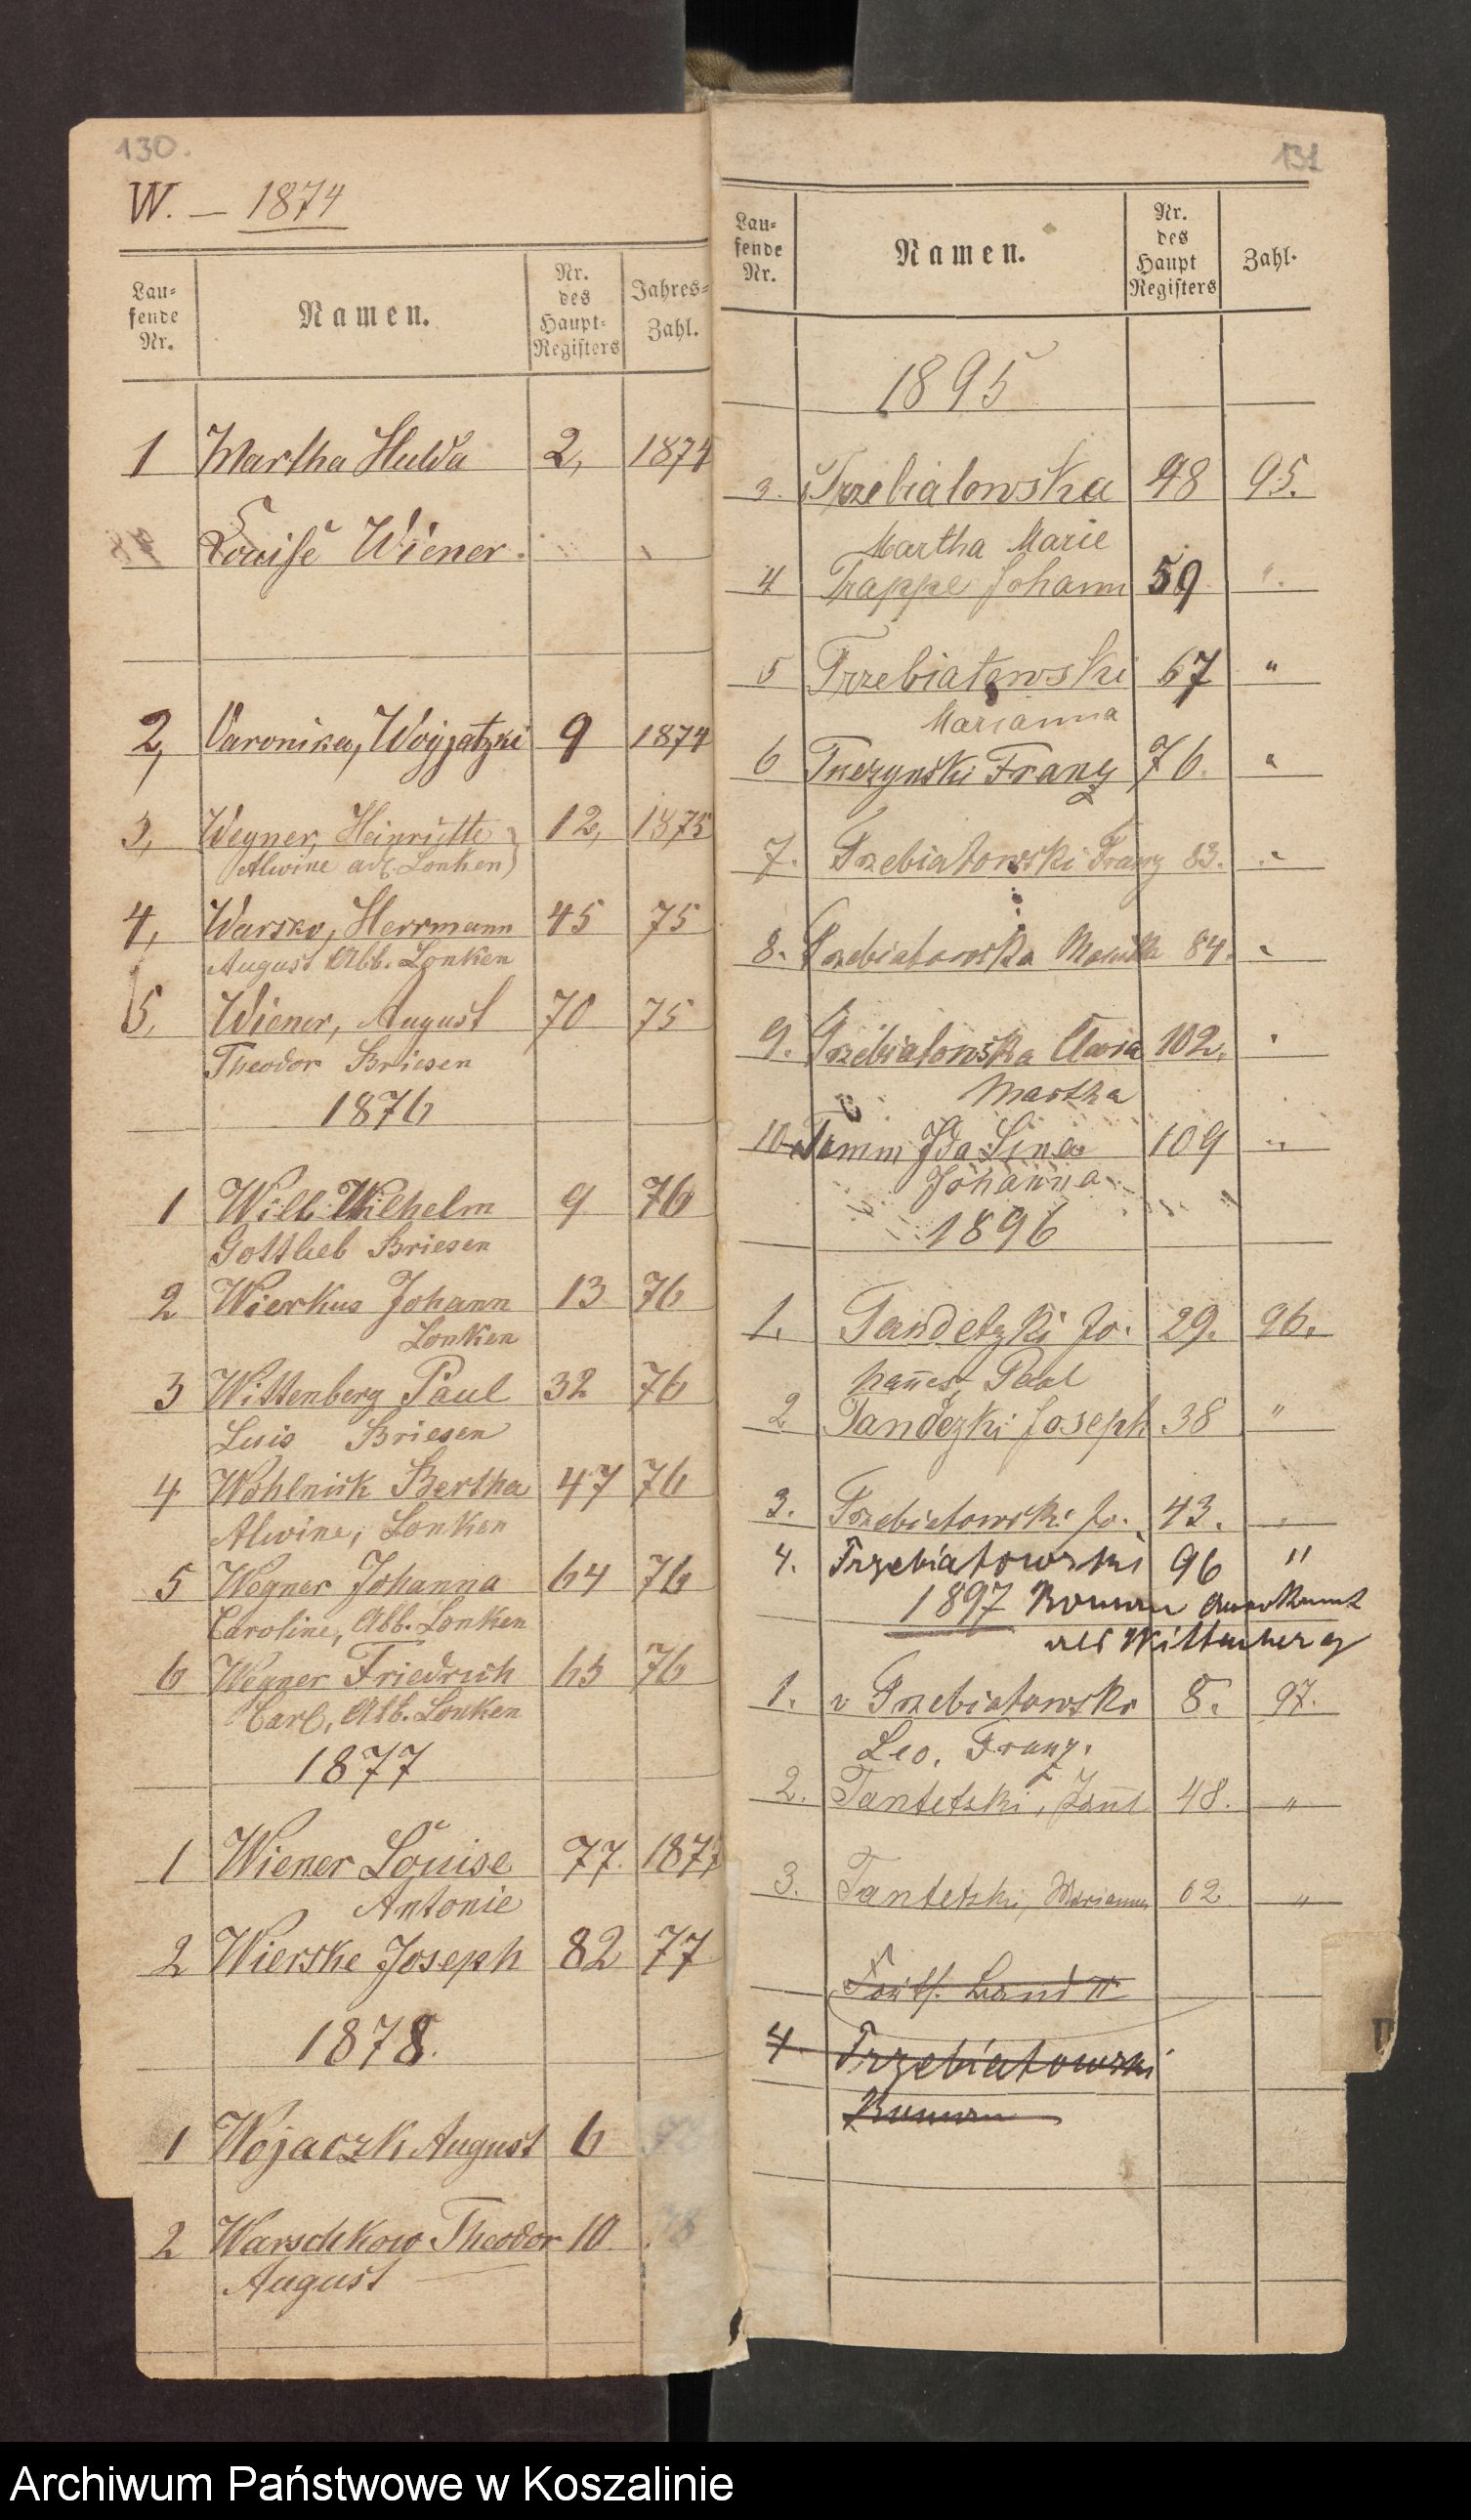 130.
W. — 1874
Lau-
fende
Nr.
Namen.
Nr.
des
Haupt-
Registers
Jahres-
Zahl.
1 Martha Hulda 2, 1874
Louise Wiener.
2, Varonika, Woyjatzki 9 1874
3, Wegner, Heinriette 12, 1875
Alwine adl. Lonken)
4, Warsko, Herrmann 45 75
August Abb. Lonken
5, Wiener, August 70 75
Theodor Briesen
1876
1 Will Wilhelm 9 76
Gottlieb Briesen
2 Wierkus Johann 13 76
Lonken
3 Wittenberg Paul 32 76
Luis Briesen
4 Wohlnick Bertha 47 76
Alwine, Lonken
5 Wegner Johanna 64 76
Caroline, Abb. Lonken
6 Wegner Friedrich 65 76
Carl, Abb. Lonken
1877
1 Wiener Louise 77. 1877
Antonie
2 Wierske Joseph 82 77
1878.
1 Wojaczk August 6
2 Warschkow Theodor 10
August
131
Lau-
fende
Nr.
Namen.
Nr.
des
Haupt
Registers
Zahl.
1895
3. Trzebiatowska 48 95.
Martha Marie
4 Trappe Johann 59 ".
5 Trzebiatowski 67 "
Marianna
6 Tuczynski Franz 76. "
7. Trzebiatowski Franz 83. "
8. Trzebiatowska 84. "
9. Trzebiatowska 102. "
Martha
10 Tramm Ida Lina 109 "
Johanna
1896
1. Tandetzki Jo- 29. 96.
hannes Paul
2 Tandezki Joseph 38 "
3. Trzebiatowski Jo. 43. "
4. Trzebiatowski 96 "
1897 Roman anerkannt
als Wittenberg
1. v Trzebiatowski 8. 97.
Leo, Franz.
2. Tantetski, 48. "
3. Tantetski, Marianna 62. "
Fortf. Band II
4. Trzebiatowski
Roman
Archiwum Państwowe w Koszalinie